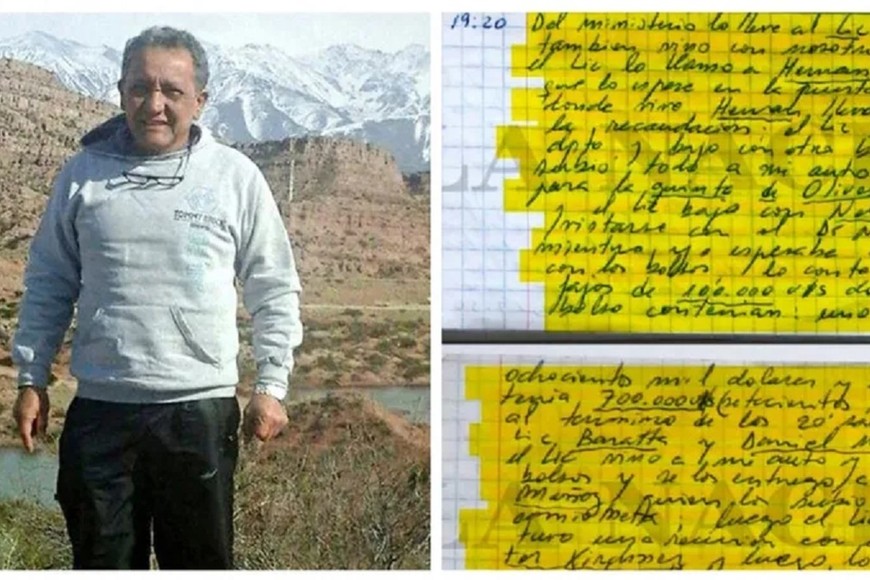 TOMMY
19:20 Del ministerio lo lleve al Lic
tambien vino con nosotro
el Lic lo llamo a Hernan
que lo espere en la puerta
donde vive Hernan
la recaudacion, el Lic
dpto y bajo con otro b
todo a mi auto
para la quinta de Olivo
y el Lic bajo con Ne
con el Dr
mientras yo esperaba
con los bolsos, lo conta
fajos de 100.000 u$s
bolso contenian: uno
ochocientos mil dolares y
tenia 700.000 u$s (setecientos
al termino de los 20
Lic. Baratta y Daniel M
el Lic vino a mi auto y
bolsos y se los entrego a
Muñoz, quien los subio
camioneta, luego el Lic
tuvo una reunion con
tor Kirchner y luego, lo
LA NAC
LA NAC